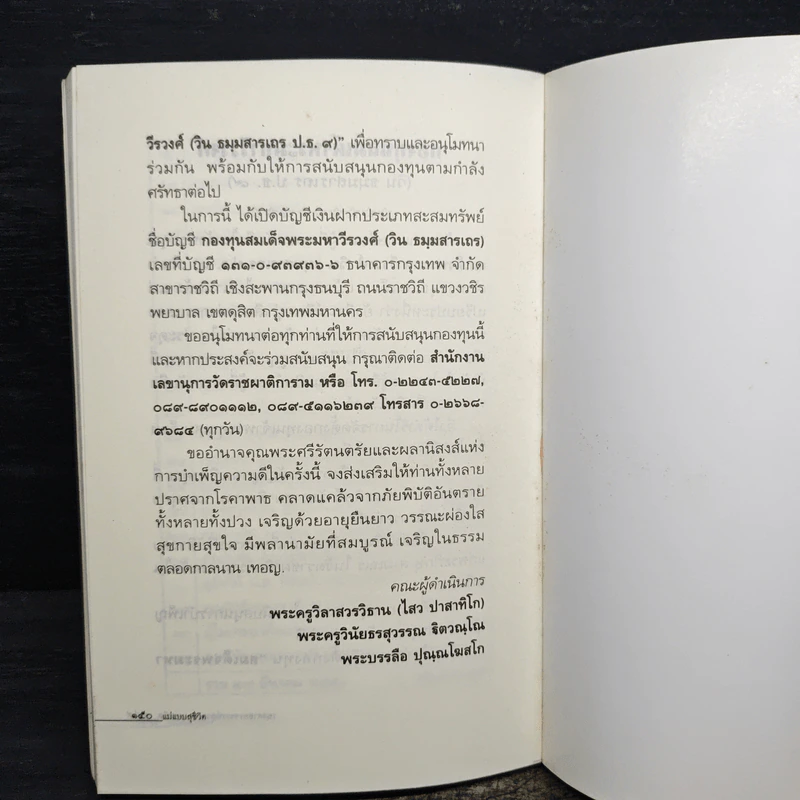 วีรวงศ์ (วิน ธมฺมสารเถร ป.ธ. ๙)" เพื่อทราบและอนุโมทนา
ร่วมกัน พร้อมกับให้การสนับสนุนกองทุนตามกำลัง
ศรัทธาต่อไป
ในการนี้ ได้เปิดบัญชีเงินฝากประเภทสะสมทรัพย์
ชื่อบัญชี กองทุนสมเด็จพระมหาวีรวงศ์ (วิน ธมฺมสารเถร)
เลขที่บัญชี ๑๓๑-๐-๙๓๙๓๖-๖ ธนาคารกรุงเทพ จำกัด
สาขาราชวิถี เชิงสะพานกรุงธนบุรี ถนนราชวิถี แขวงวชิร
พยาบาล เขตดุสิต กรุงเทพมหานคร
ขออนุโมทนาต่อทุกท่านที่ให้การสนับสนุนกองทุนนี้
และหากประสงค์จะร่วมสนับสนุน กรุณาติดต่อ สำนักงาน
เลขานุการวัดราชผาติการาม หรือ โทร. ๐-๒๒๔๓-๕๒๒๗,
๐๘๙-๘๙๐๑๑๑๒, ๐๘๙-๕๑๑๖๒๓๙ โทรสาร ๐-๒๖๖๘-
๙๖๘๔ (ทุกวัน)
ขออำนาจคุณพระศรีรัตนตรัยและผลานิสงส์แห่ง
การบำเพ็ญความดีในครั้งนี้ จงส่งเสริมให้ท่านทั้งหลาย
ปราศจากโรคาพาธ คลาดแคล้วจากภัยพิบัติอันตราย
ทั้งหลายทั้งปวง เจริญด้วยอายุยืนยาว วรรณะผ่องใส
สุขกายสุขใจ มีพลานามัยที่สมบูรณ์ เจริญในธรรม
ตลอดกาลนาน เทอญ.
คณะผู้ดำเนินการ
พระครูวิลาสวรวิธาน (ไสว ปาสาทิโก)
พระครูวินัยธรสุวรรณ ฐิตวณฺโณ
พระบรรลือ ปุณฺณโฆสโก
๑๕๐ แม่แบบสู่ชีวิต